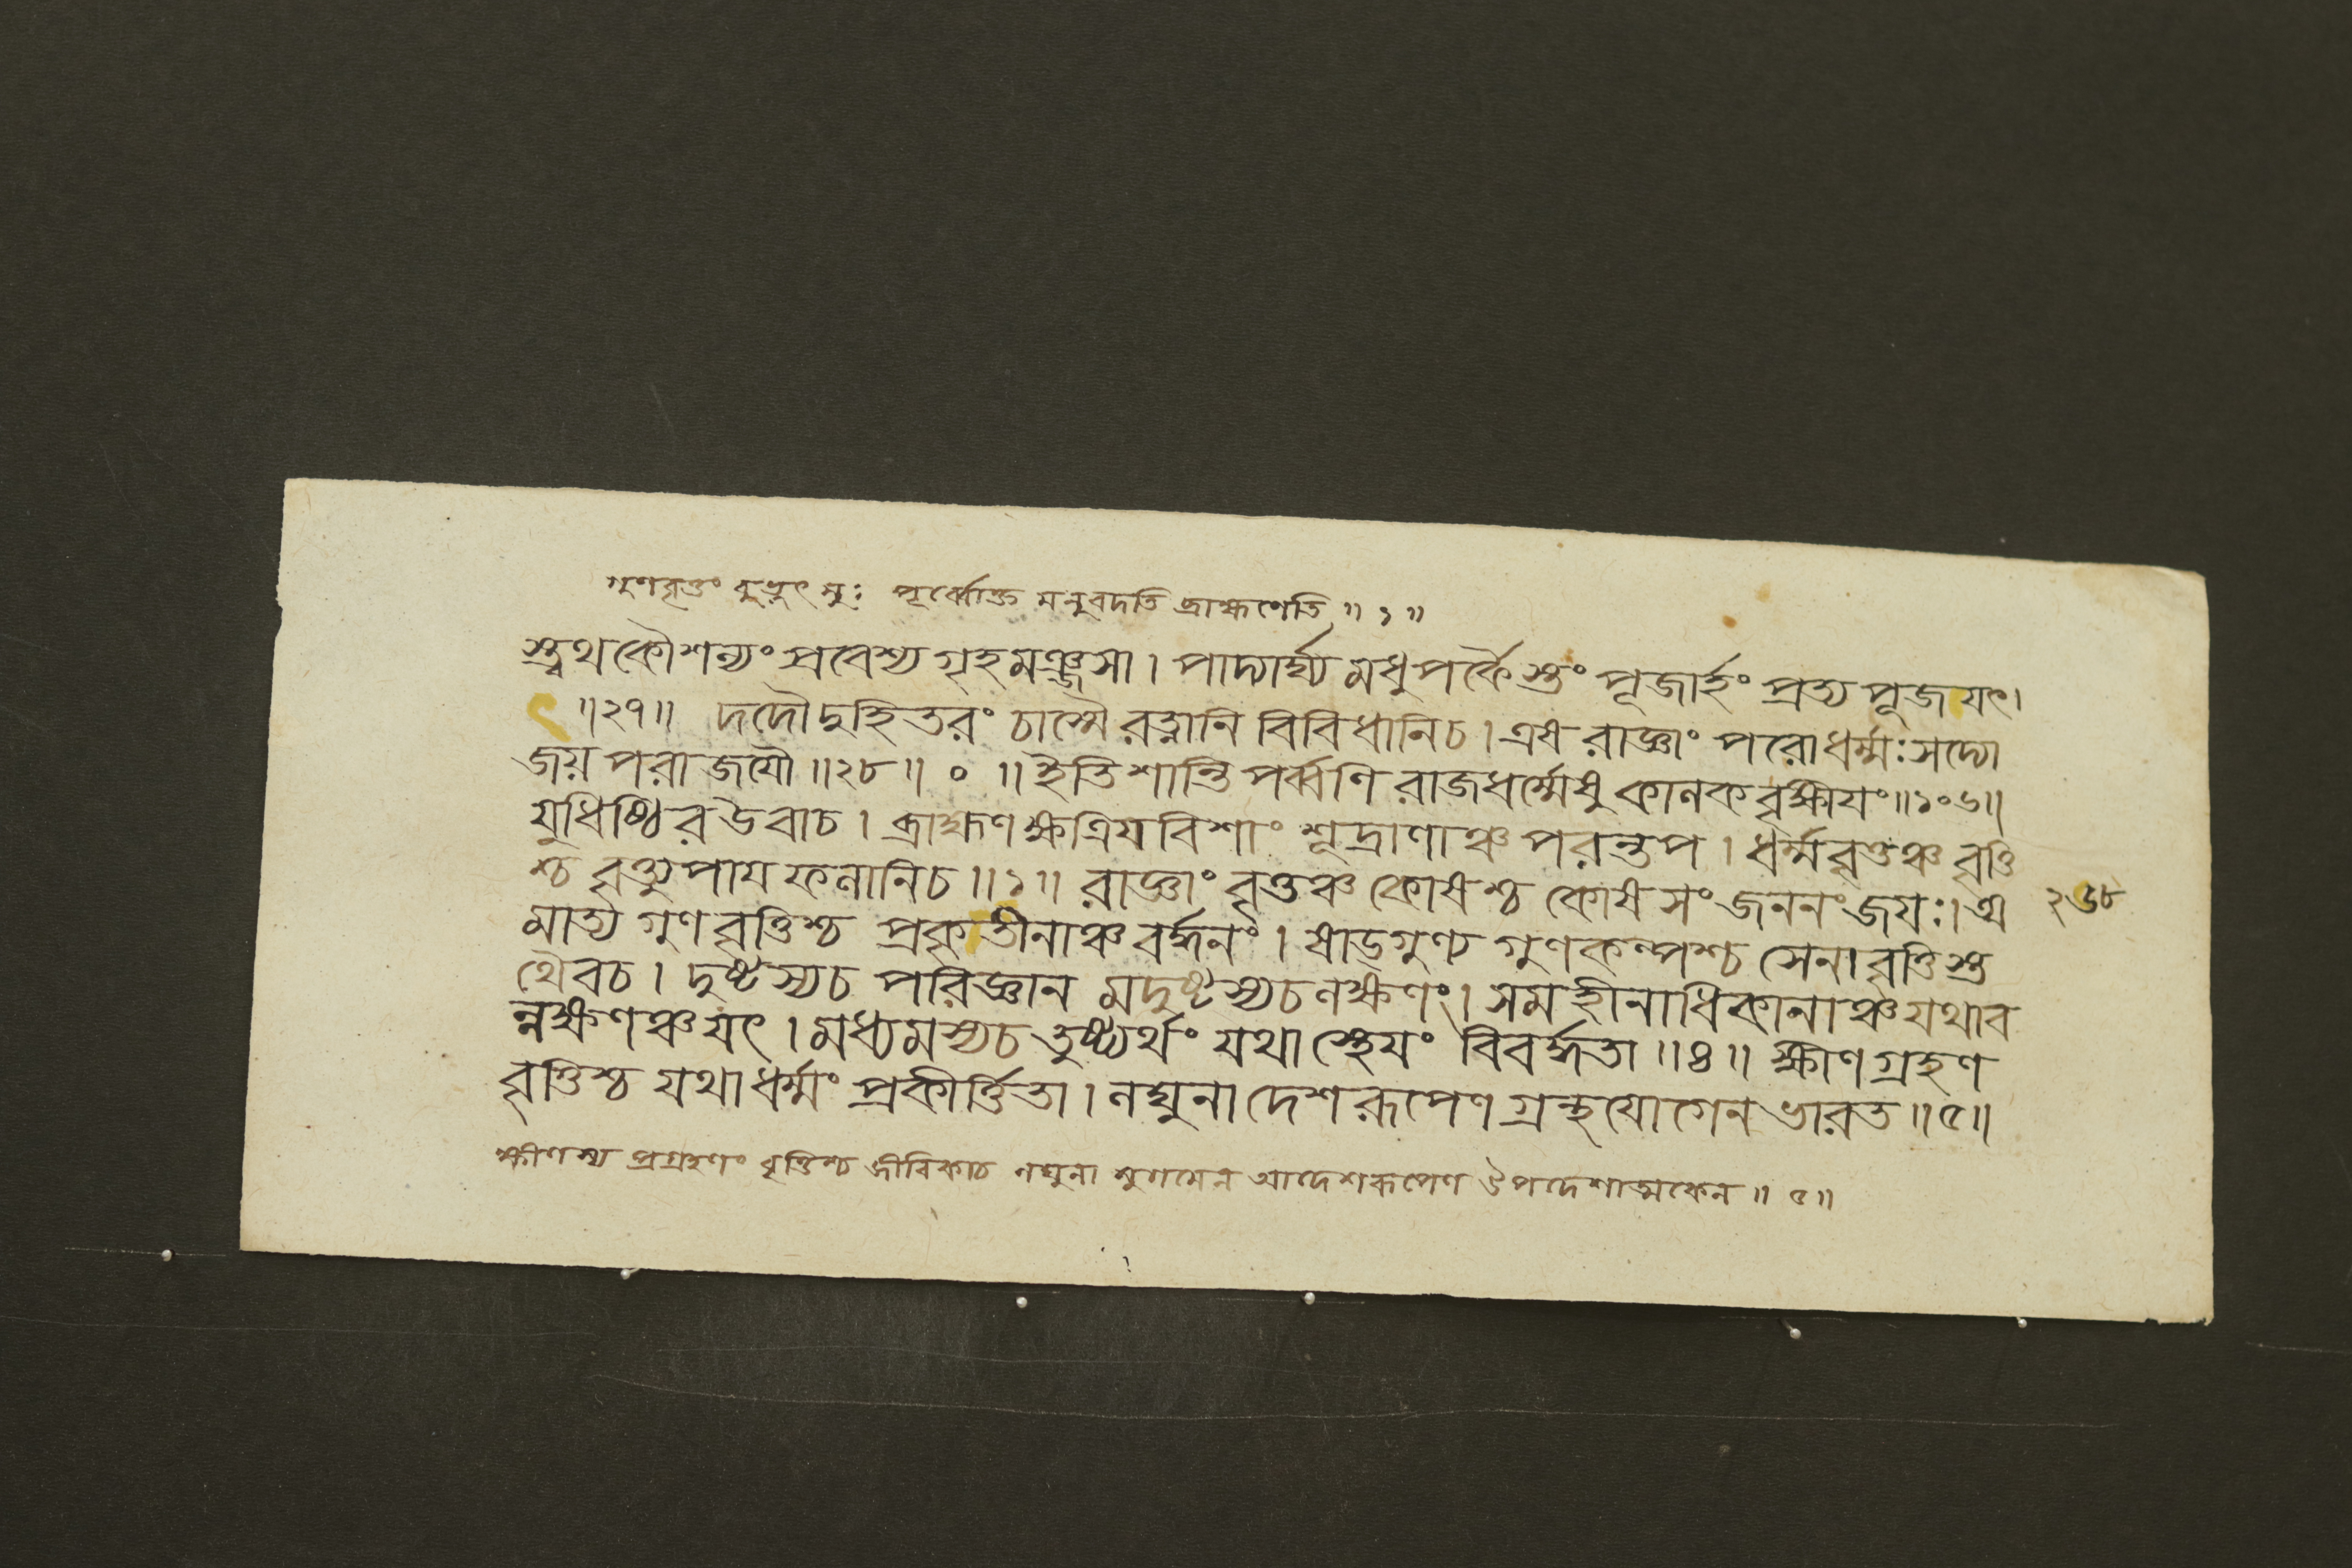 গুণবৃত্তং বুভুৎসুঃ পূর্ব্বোক্ত মনুবদতি ব্রাহ্মণেতি ॥ ১ ॥
স্ত্বথকৌশল্যং প্রবেশ্য গৃহমঞ্জসা । পাদ্যার্ঘ্য মধুপর্কৈস্তং পূজার্হং প্রত্যপূজয়ৎ ।
॥২৭॥ দদৌদুহিতরং চাস্মৈ রত্নানি বিবিধানিচ । এষ রাজ্ঞাং পরোধর্ম্মঃ সদ্যো
জয় পরাজযৌ ॥২৮॥ ০ ॥ ইতি শান্তি পর্ব্বণি রাজধর্ম্মেষু কালকবৃক্ষীযং ॥১০৬॥
যুধিষ্ঠির উবাচ । ব্রাহ্মণ ক্ষত্রিয বিশাং শূদ্রাণাঞ্চ পরন্তপ । ধর্ম্মবৃত্তঞ্চ বৃত্তি
শ্চ বৃত্ত্যুপায ফলানিচ ॥১॥ রাজ্ঞাং বৃত্তঞ্চ কোষশ্চ কোষ সংজননং জযঃ । অ
২৬৮
মাত্য গুণবৃত্তিশ্চ প্রকৃতীনাঞ্চ বর্দ্ধনং । ষাড্গুণ্য গুণকল্পশ্চ সেনাবৃত্তিস্ত
থৈবচ । দুষ্টস্যচ পরিজ্ঞান মদুষ্টস্যচ লক্ষণং । সমহীনাধিকানাঞ্চ যথাব
ল্লক্ষণঞ্চ যৎ । মধ্যমস্যচ তুষ্ট্যর্থং যথাস্থেযং বিবর্দ্ধতা ॥৪॥ ক্ষীণগ্রহণ
বৃত্তিশ্চ যথাধর্ম্মং প্রকীর্ত্তিতা । লঘুনা দেশরূপেণ গ্রন্থযোগেন ভারত ॥৫॥
ক্ষীণস্য প্রগ্রহণং বৃত্তিশ্চ জীবিকাচ লঘুনা সুগমেন আদেশরূপেণ উপদেশাত্মকেন ॥ ৫॥